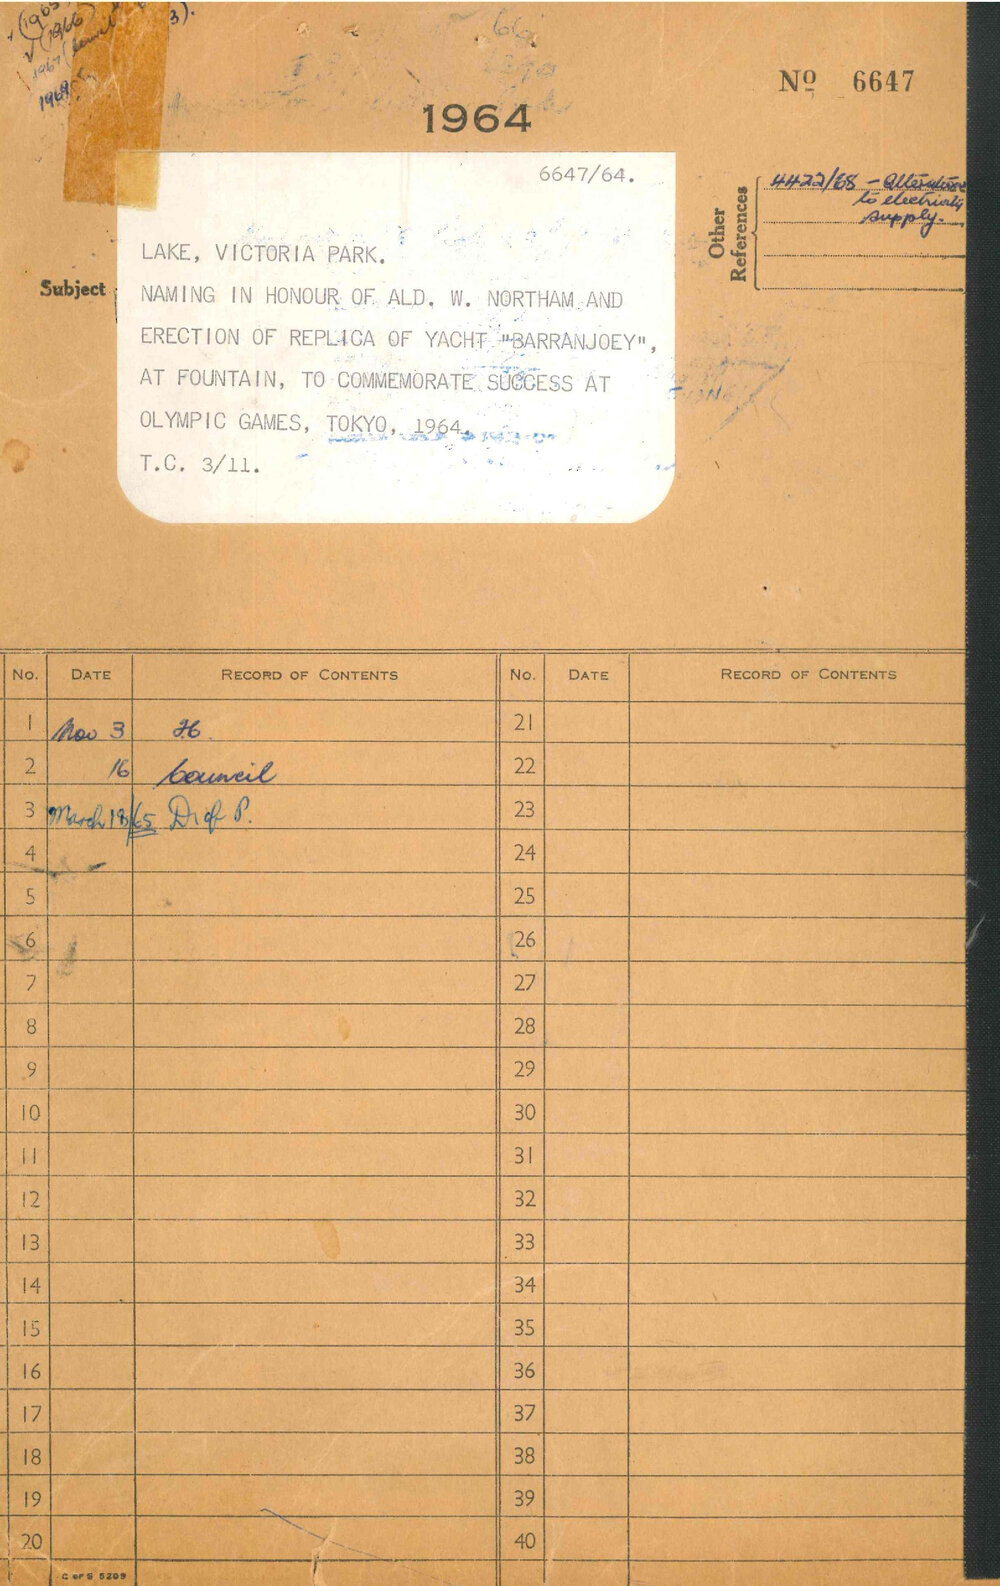 (1965
(1966
1967
1969
3).
No 6647
1964
6647/64.
Other References
4422/68 - Alterations
to electricity
supply.
Subject
LAKE, VICTORIA PARK.
NAMING IN HONOUR OF ALD. W. NORTHAM AND
ERECTION OF REPLICA OF YACHT "BARRANJOEY",
AT FOUNTAIN, TO COMMEMORATE SUCCESS AT
OLYMPIC GAMES, TOKYO, 1964.
T.C. 3/11.
No. DATE RECORD OF CONTENTS No. DATE RECORD OF CONTENTS
1 Nov 3 21
2 16 Council 22
3 March 18/65 D of P. 23
4 24
5 25
6 26
7 27
8 28
9 29
10 30
11 31
12 32
13 33
14 34
15 35
16 36
17 37
18 38
19 39
20 40
C OF S 5209